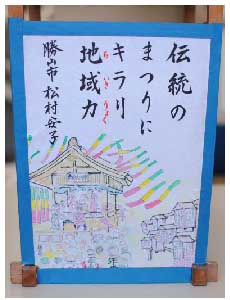 伝統の
まつりに
キラリ
地域力
ちいきりょく
勝山市 松村安子